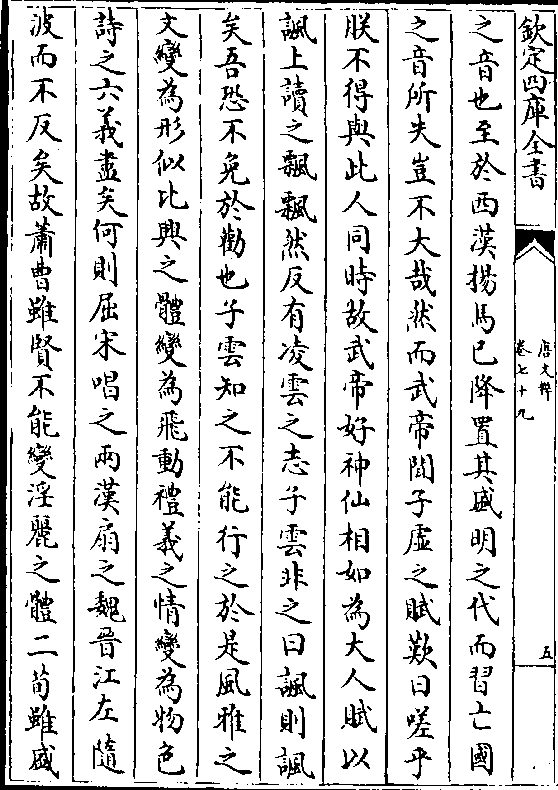 欽定四庫全書
唐文粹
卷七十九
五
之音也至於西漢揚馬已降置其盛明之代而習亡國
之音所失豈不大哉然而武帝聞子虛之賦歎曰嗟乎
朕不得與此人同時故武帝好神仙相如為大人賦以
諷上讀之飄飄然反有凌雲之志子雲非之曰諷則諷
矣吾恐不免於勸也子雲知之不能行之於是風雅之
文變為形似比興之體變為飛動禮義之情變為物色
詩之六義盡矣何則屈宋唱之兩漢扇之魏晉江左隨
波而不反矣故蕭曹雖賢不能變淫麗之體二荀雖盛